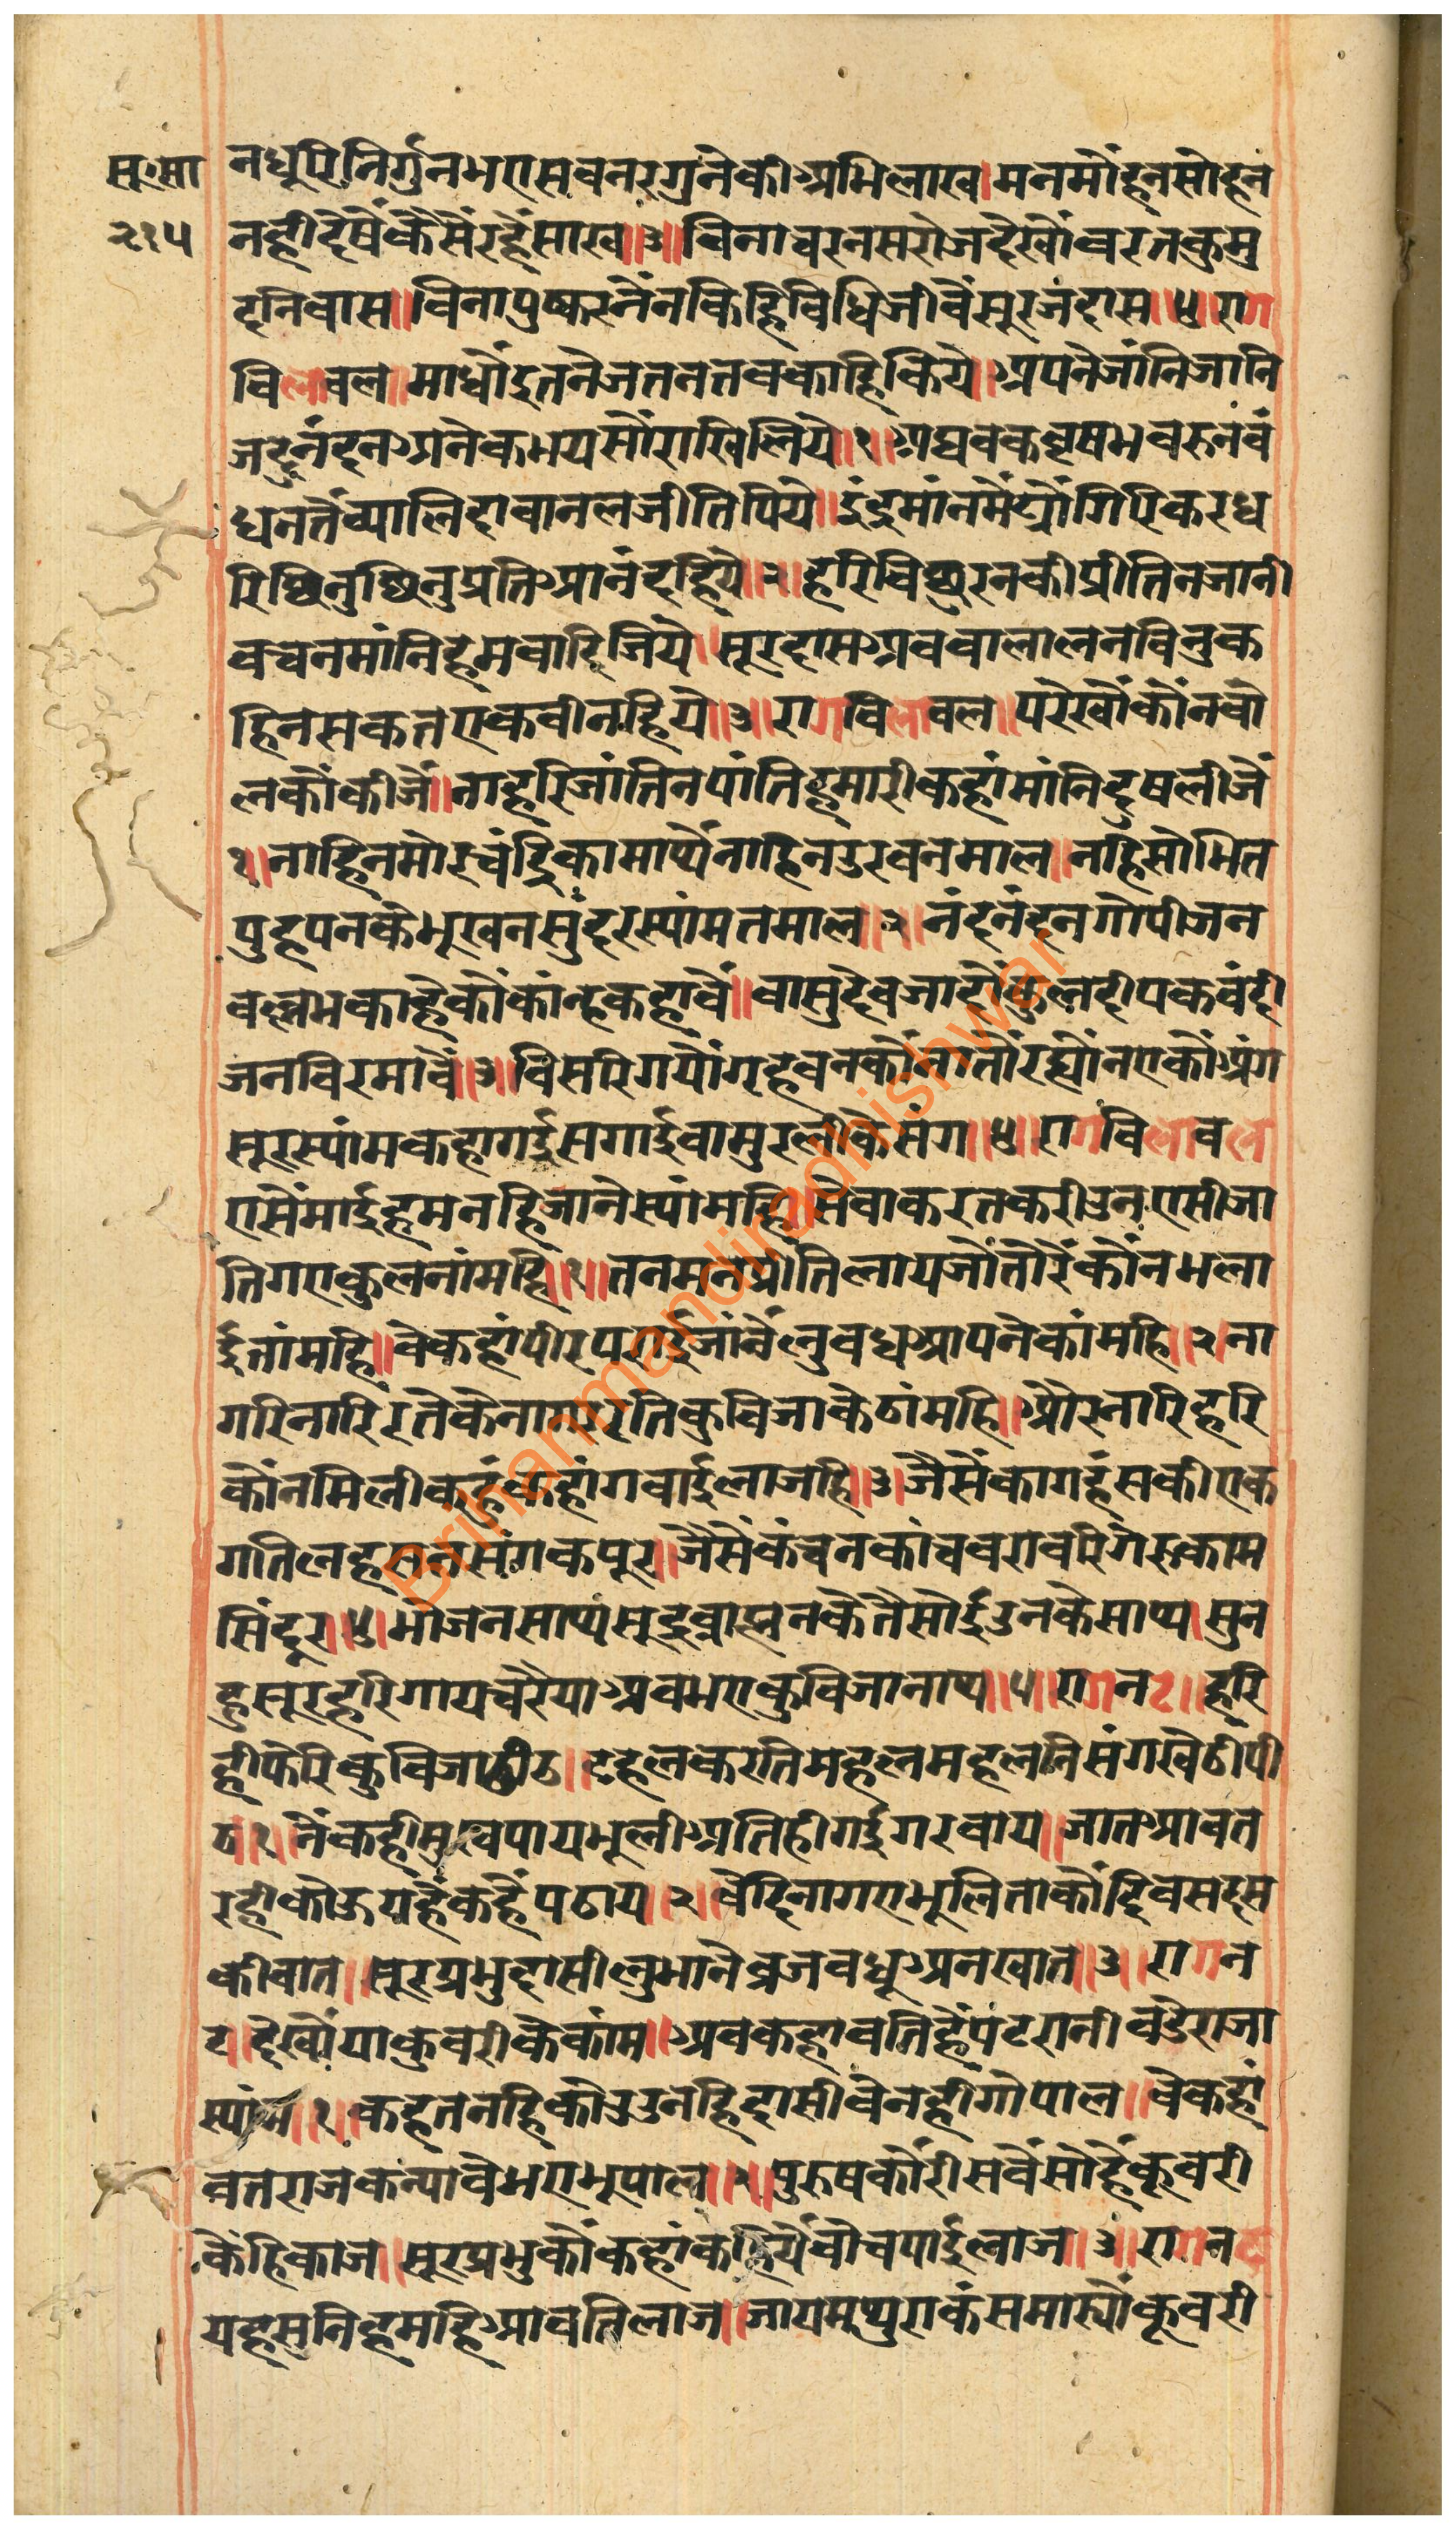 सू॰सा
२१५
नधूरिनिर्गुनभएसबनरगुनेकीअभिलाख।मनमोंहनसोहन
नहीदेषैंकैसैंरहैंसाख॥३॥विनाचरनसरोजदेखौंवरतकुमु
दनिवास॥विनापुष्करनैंनकिहिविधिजीवैंसूरजदास॥४॥राग
विलावल॥माधौंइतनेजतनतबकाहिकिये॥अपनेजांनिजानि
जदुनंदनअनेकभयसौंराखिलिये॥१॥अघवकवृषभवरुनबं
धनतैंव्यालिदावानलजीतिपिये॥इंद्रमांनमेंट्यौंगिरिकरध
रिछिनुछिनुप्रतिआनंदहिये॥२॥हरिविछुरनकीप्रीतिनजानी
वचनमांनिहमवादिजिये॥सूरदासअबवालालनविनुक
हिनसकतएकवीनहिये॥३॥रागविलावल॥परेखौंकौंनवो
लकौंकीजैं॥नाहरिजांतिनपांतिहमारीकहांमांनिदुषलीजैं
१॥नाहिनमोरचंद्रिकामाथैंनाहिनउरवनमाल॥नहिसोभित
पुहपनकेभूखनसुंदरस्यांमतमाल॥२॥नंदनंदनगोपीजन
वल्लभकाहेकौंकांन्हकहावैं॥वासुदेवजादौंकुलदीपकवंदी
जनविरमावैं॥३॥विसरिगयौंगृहवनकौंनातौंरह्यौंनएकौंअंग
सूरस्यांमकहागईसगाईवामुरलीकेसंग॥४॥रागविलावल
एसैंमाईहमनहिजानेस्यांमहि॥सेवाकरतकरीउनएसीजा
तिगएकुलनांमहि॥१॥तनमनप्रीतिलायजौंतोरैंकौंनभला
ईतांमहि॥वेकहांपीरपराईजांनैंलुबधआपनेकांमहि॥२।ना
गरिनारिरतेकेनागरतिकुविजाकेठांमहि॥औरनारिहरि
कौंनमिलीकहुंकहांगवाईलाजहि॥३॥जैसैंकागहंसकीएक
गतिलहसनसंगकपूर॥जैसैंकंचनकांचवरावरिगेरुकाम
सिंदूर॥४॥भोजनसाथसूद्रब्राह्मनकेतैसोईउनकेसाथ॥सुन
हुसूरहरिगायचरैयाअबभएकुविजानाथ॥५॥रागनट॥हरि
हीफेरिकुविजाढीठ॥टहलकरतिमहलमहलनिसंगवैठीपी
ठ॥१॥नैंकहीमुखपायभूलीअतिहीगईगरवाय॥जातआवत
रहीकोऊयहैंकहैंपठाय॥२॥वेदिनागएभूलिताकौंदिवसदस
कीवात॥सूरप्रभुदासीलुभानेब्रजवधूअनखात॥३॥रागन
ट॥देखौंयाकुवरीकेकांम॥अबकहावतिहैंपटरानीवडेराजा
स्यांम॥१॥कहतनहिकोउउनहिदासीवेनहीगोपाल॥वेकहां
वतराजकन्यावेभएभूपाल॥२॥पुरुषकौंरीसबैंसोहैंकूवरी
कैंहिकाज॥सूरप्रभुकौंकहांकहियेंवेचपाईलाज॥३॥रागनट
यहसुनिहमहिआवतिलाज॥जायमथुराकंसमार्यौंकूवरी
Brihanmandiradhishwar